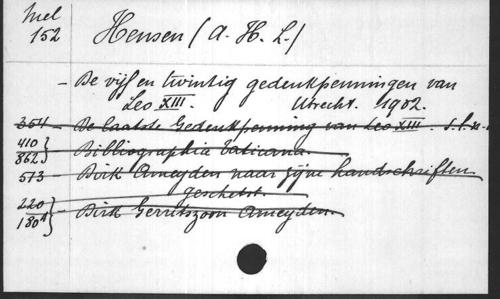 Mel
152
Hensen (A. H. L.)
- De vijf en twintig gedenkpenningen van
Leo XIII. Utrecht. 1902.
354 - De laatste Gedenkpenning van Leo XIII. s.l.n.
410
862 } - Bibliographia Vaticana.
573 - Dirk Ameyden naar zijne handschriften
geschetst.
220
180A } - Dirk Gerritszoon Ameyden.